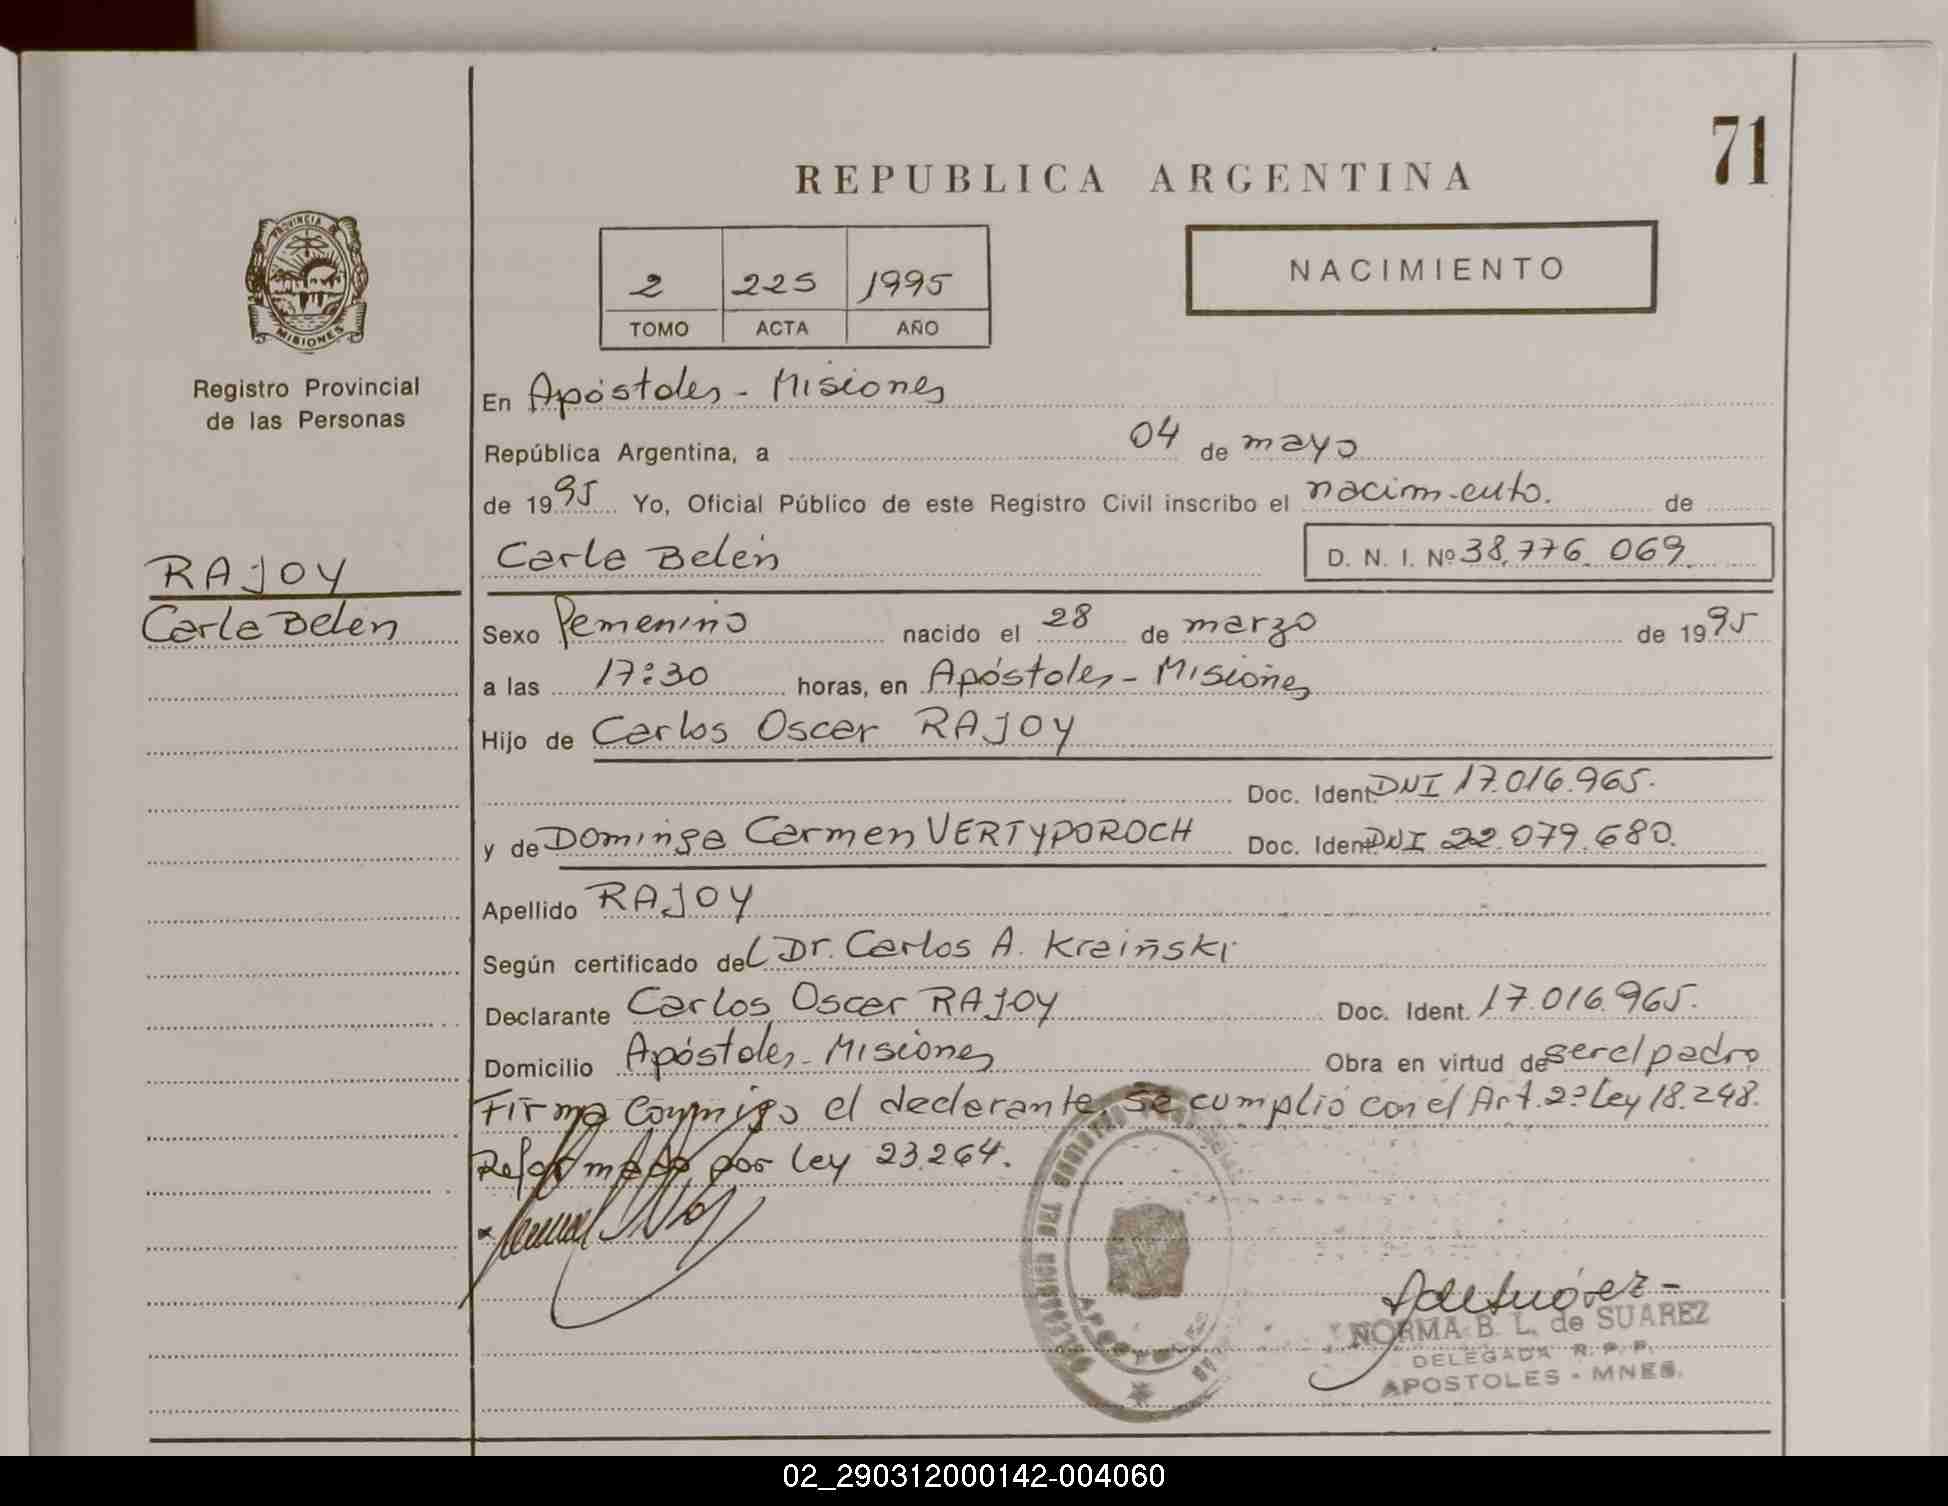 71
REPUBLICA ARGENTINA
PROVINCIA
MISIONES
Registro Provincial
de las Personas
2 225 1995
TOMO ACTA AÑO
NACIMIENTO
En Apóstoles - Misiones
República Argentina, a 04 de mayo
de 1995 Yo, Oficial Público de este Registro Civil inscribo el nacimiento. de
Carla Belén D. N. I. Nº 38.776.069
RAJOY
Carla Belén
Sexo Femenino nacido el 28 de marzo de 1995
a las 17:30 horas, en Apóstoles - Misiones
Hijo de Carlos Oscar RAJOY
Doc. Ident. DNI 17.016.965.
y de Dominga Carmen VERTYPOROCH Doc. Ident. DNI 22.079.680.
Apellido RAJOY
Según certificado del Dr. Carlos A. Kraiñski
Declarante Carlos Oscar RAJOY Doc. Ident. 17.016.965.
Domicilio Apóstoles - Misiones Obra en virtud de ser el padre
Firma conmigo el declarante. Se cumplió con el Art. 2º Ley 18.248.
Reformado por Ley 23.264.
NORMA B. L. de SUAREZ
DELEGADA R. P. P.
APOSTOLES - MNES.
02_290312000142-004060